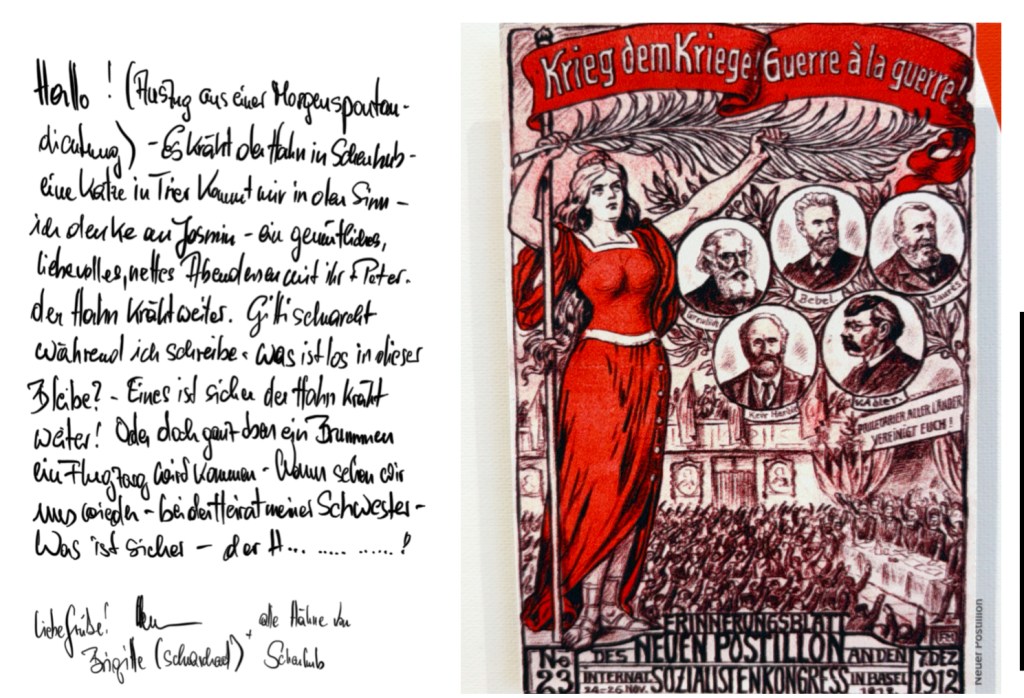 Hallo! (Auszug aus einer Morgenspontan-
dichtung) - Es kräht der Hahn in Schenhub -
eine Katze in Trier kommt mir in den Sinn -
ich denke an Josmin - ein gemütliches,
liebevolles, nettes Abendessen mit ihr + Peter.
der Hahn kräht weiter. Gitti schnarcht
während ich schreibe. Was ist los in dieser
Bleibe? - Eines ist sicher der Hahn kräht
weiter! Oder doch ganz oben ein Brummen
ein Flugzeug wird kommen - Wann sehen wir
uns wieder - bei der Heirat meiner Schwester -
Was ist sicher - der H... ..... ......!
liebe Grüße!
Brigitte (schnarchend) +
alle Hähne von
Schenhub
Krieg dem Kriege! Guerre à la guerre!
Greulich
Bebel.
Jaurès
Keir Hardie
V. Adler.
PROLETARIER ALLER LÄNDER
VEREINIGT EUCH!
ERINNERUNGSBLATT
DES NEUEN POSTILLON AN DEN
No 23
INTERNAT. SOZIALISTENKONGRESS IN BASEL
24-26 NOV.
7. DEZ
1912
Neuer Postillion